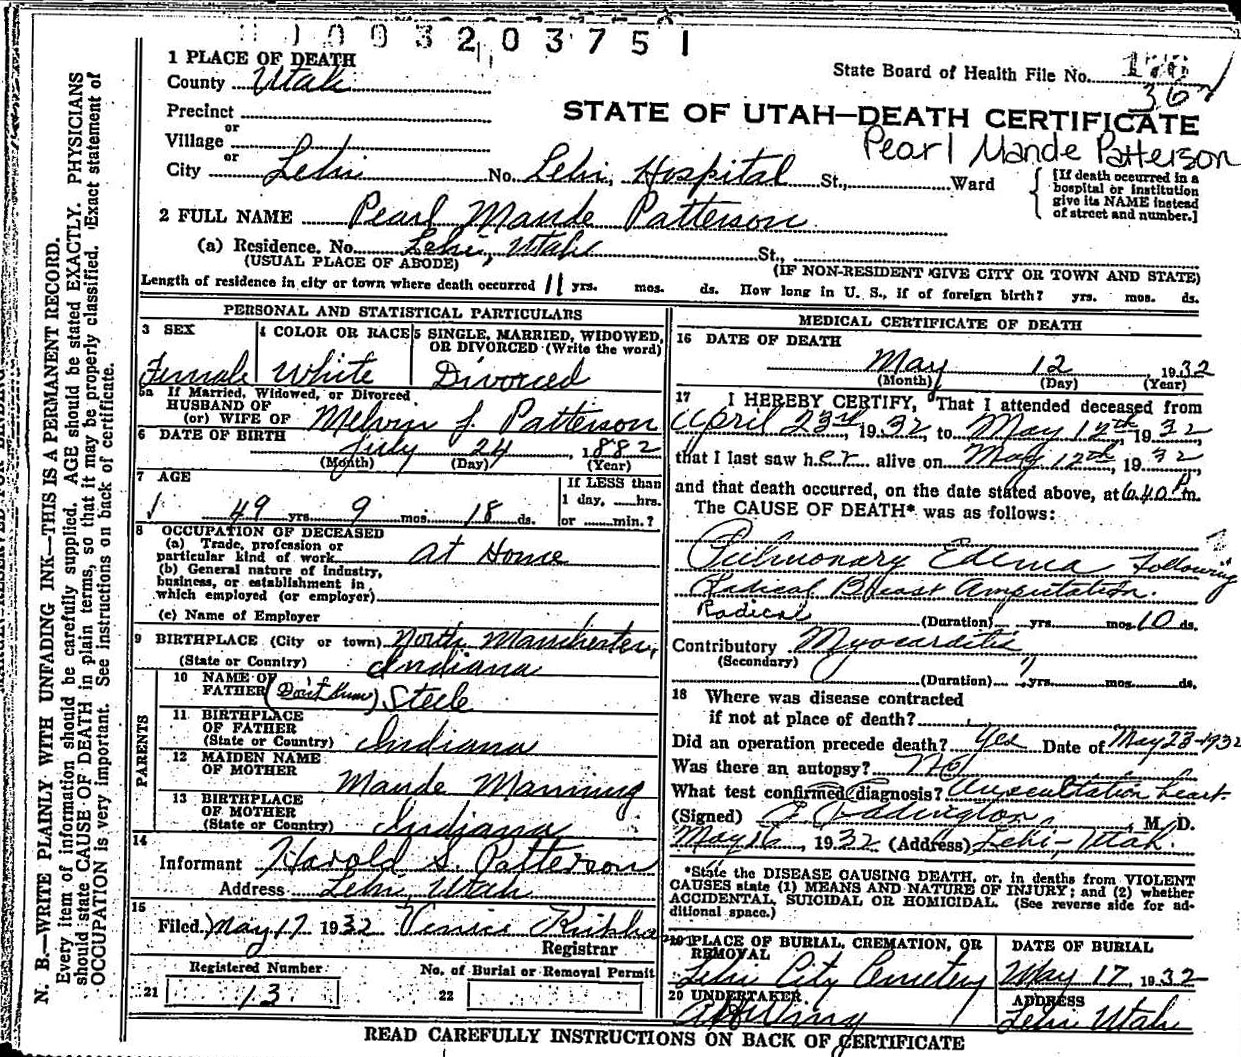 1003203751
1 PLACE OF DEATH
County Utah
State Board of Health File No.
36
Precinct
or
Village
or
City Lehi No. Lehi, Hospital St., Ward
STATE OF UTAH—DEATH CERTIFICATE
Pearl Maude Patterson
[If death occurred in a
hospital or institution
give its NAME instead
of street and number.]
2 FULL NAME Pearl Maude Patterson
(a) Residence. No. Lehi, Utah St.,
(USUAL PLACE OF ABODE) (IF NON-RESIDENT GIVE CITY OR TOWN AND STATE)
Length of residence in city or town where death occurred 11 yrs. mos. ds. How long in U. S., if of foreign birth? yrs. mos. ds.
PERSONAL AND STATISTICAL PARTICULARS
3 SEX 4 COLOR OR RACE 5 SINGLE, MARRIED, WIDOWED,
OR DIVORCED (Write the word)
Female White Divorced
5a If Married, Widowed, or Divorced
HUSBAND OF
(or) WIFE OF Melvin J. Patterson
6 DATE OF BIRTH July 24, 1882
(Month) (Day) (Year)
7 AGE If LESS than
1 day, hrs.
49 yrs. 9 mos. 18 ds. or min.?
8 OCCUPATION OF DECEASED
(a) Trade, profession or
particular kind of work At Home
(b) General nature of industry,
business, or establishment in
which employed (or employer)
(c) Name of Employer
9 BIRTHPLACE (City or town) North Manchester,
(State or Country) Indiana
PARENTS
10 NAME OF
FATHER (Don't Know) Steele
11 BIRTHPLACE
OF FATHER
(State or Country) Indiana
12 MAIDEN NAME
OF MOTHER Maude Manning
13 BIRTHPLACE
OF MOTHER
(State or Country) Indiana
14
Informant Harold S. Patterson
Address Lehi, Utah
15
Filed May 17 1932
Registrar
Registered Number No. of Burial or Removal Permit
21 13 22
MEDICAL CERTIFICATE OF DEATH
16 DATE OF DEATH
May 12, 1932
(Month) (Day) (Year)
17 I HEREBY CERTIFY, That I attended deceased from
April 23rd, 1932, to May 12th, 1932
that I last saw her alive on May 12th, 1932,
and that death occurred, on the date stated above, at 6.40 Pm.
The CAUSE OF DEATH* was as follows:
Pulmonary Edema following
Radical Breast Amputation.
Radical (Duration) yrs. mos. 10 ds.
Contributory Myocarditis
(Secondary)
(Duration) yrs. mos. ds.
18 Where was disease contracted
if not at place of death?
Did an operation precede death? Yes Date of May 23-1932
Was there an autopsy? No
What test confirmed diagnosis? Auscultation heart.
(Signed) Eddington, M. D.
May 16, 1932 (Address) Lehi-Utah.
*State the DISEASE CAUSING DEATH, or, in deaths from VIOLENT
CAUSES state (1) MEANS AND NATURE OF INJURY; and (2) whether
ACCIDENTAL, SUICIDAL OR HOMICIDAL. (See reverse side for ad-
ditional space.)
19 PLACE OF BURIAL, CREMATION, OR
REMOVAL DATE OF BURIAL
Lehi City Cemetery May 17, 1932
20 UNDERTAKER ADDRESS
Lehi Utah
READ CAREFULLY INSTRUCTIONS ON BACK OF CERTIFICATE
N. B.—WRITE PLAINLY WITH UNFADING INK—THIS IS A PERMANENT RECORD.
Every item of information should be carefully supplied. AGE should be stated EXACTLY. PHYSICIANS
should state CAUSE OF DEATH in plain terms, so that it may be properly classified. Exact statement of
OCCUPATION is very important. See instructions on back of certificate.